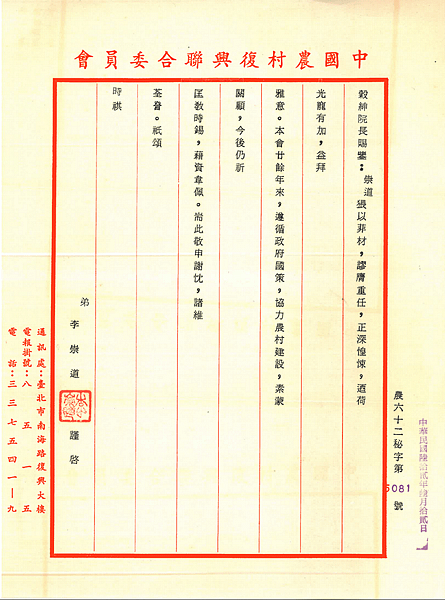 中國農村復興聯合委員會
中華民國陸拾貳年陸月拾貳日
農六十二秘字第5081號
穀紳院長賜鑒:崇道猥以菲材,謬膺重任,正深惶悚,迺荷
光寵有加,益拜
雅意。本會廿餘年來,遵循政府國策,協力農村建設,素蒙
關顧,今後仍祈
匡敎時錫,藉資韋佩。耑此敬申謝忱,諸維
荃詧。祇頌
時祺
弟 李崇道 謹啓
通訊處:臺北市南海路復興大樓
電報掛號:八五一五
電話:三三七五四一—九